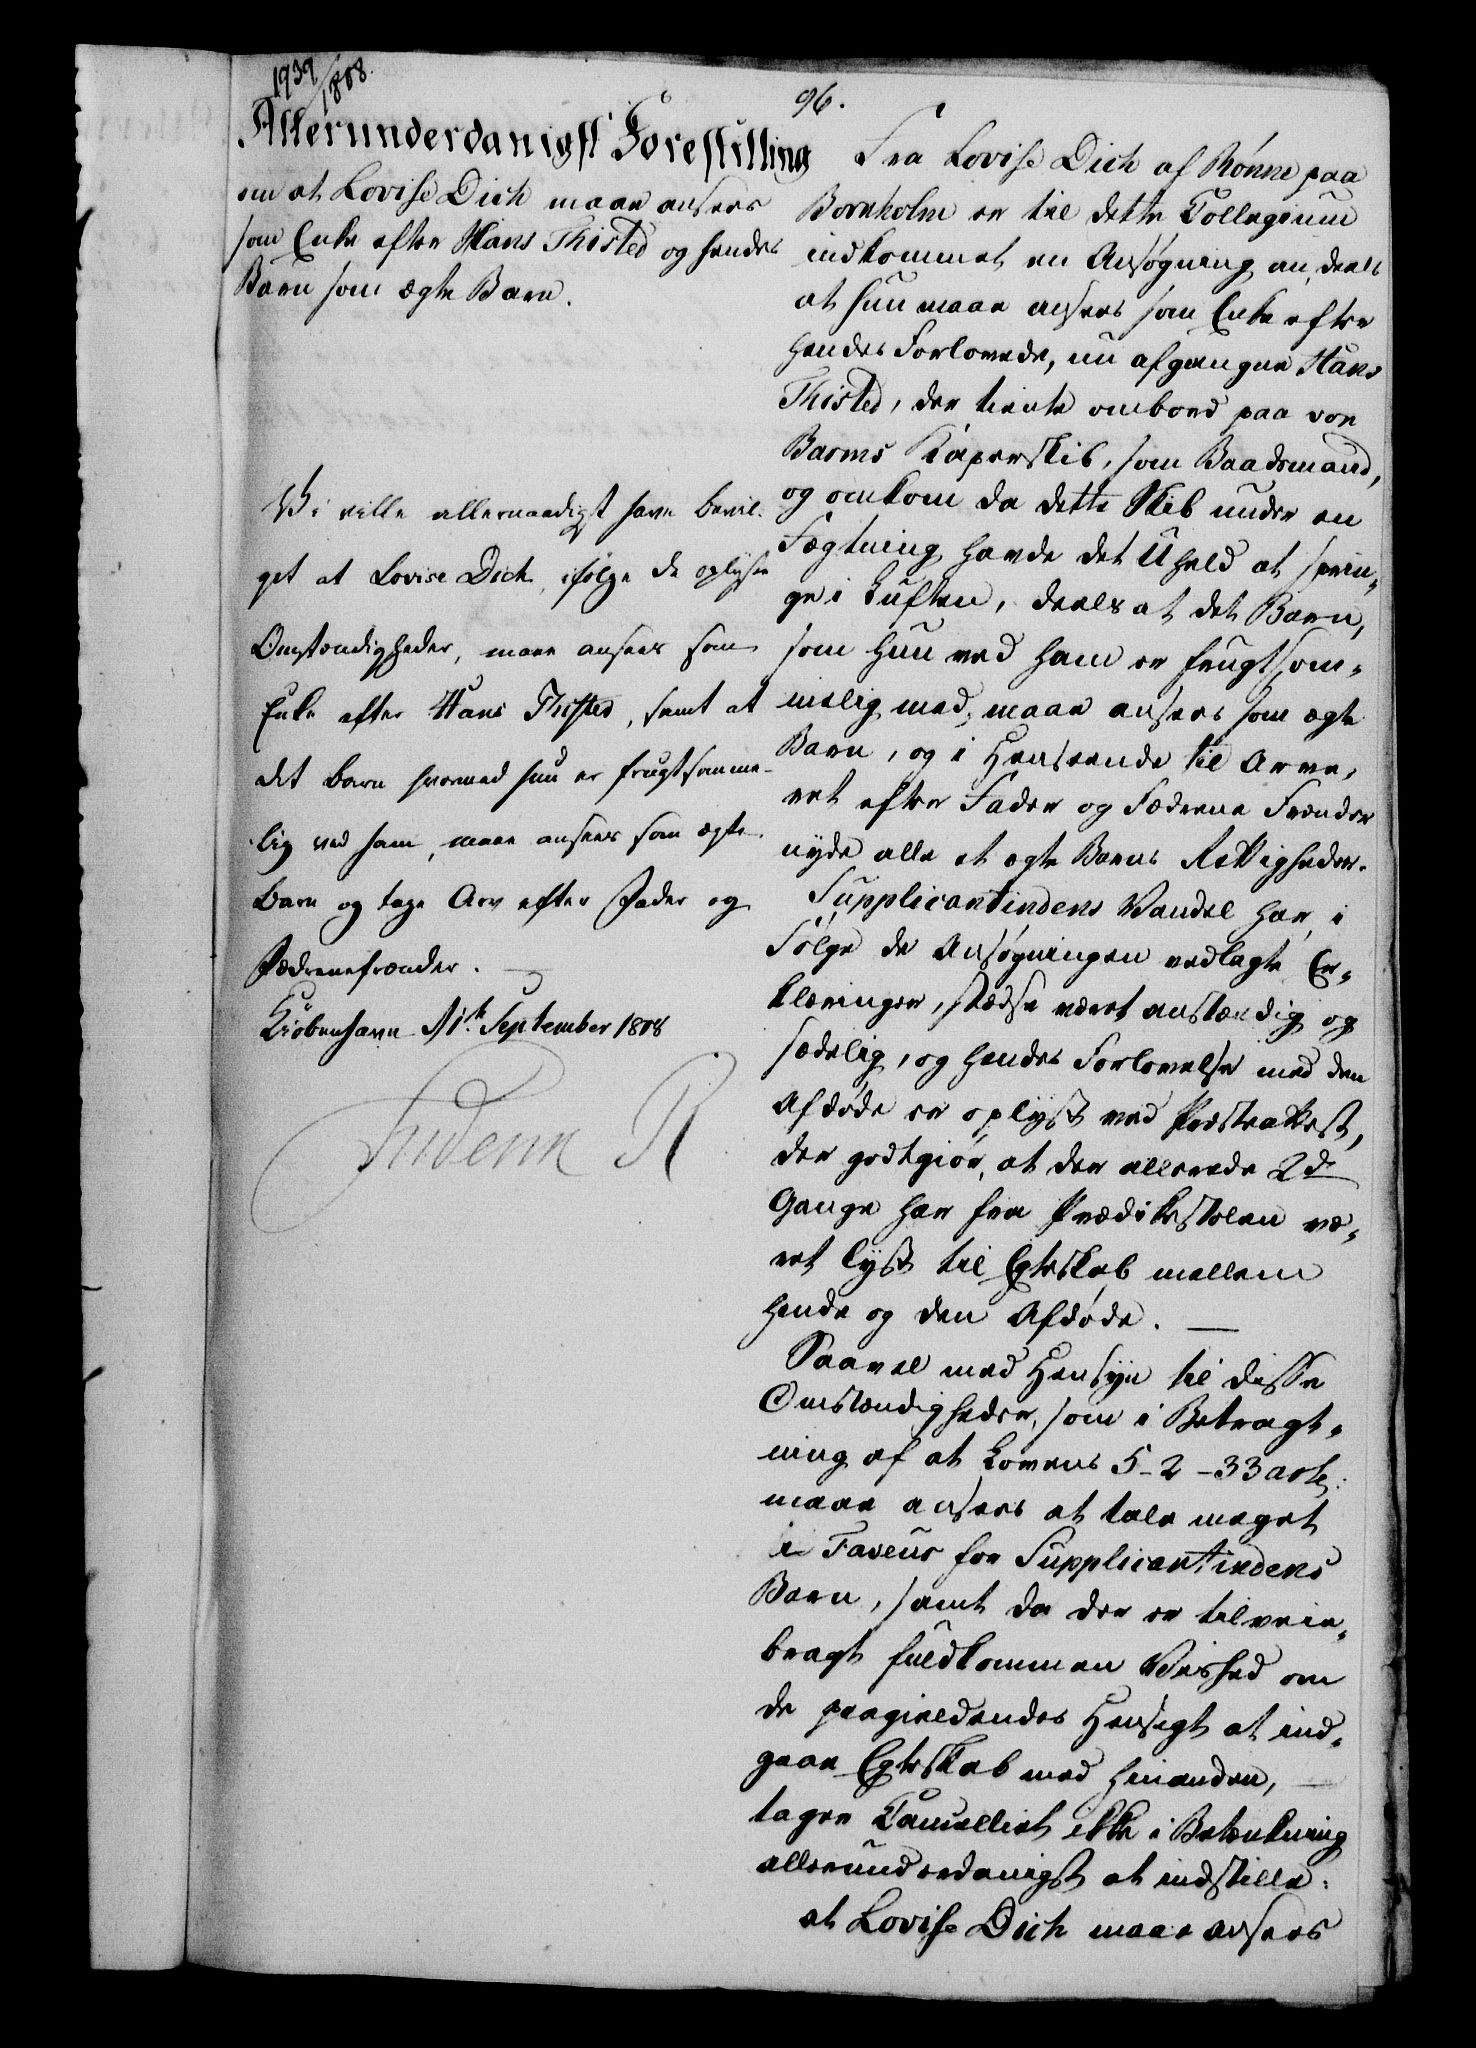 1939/1808.
96.
Allerunderdanigst Forestilling
om at Lovise Dich maae ansees
som Enke efter Hans Thisted og hendes
Barn som ægte Barn.
Vi ville allernaadigst have bevil-
get at Lovise Dich, ifølge de oplyste
Omstændigheder, maae ansees som
Enke efter Hans Thisted, samt at
det Barn hvormed hun er frugtsomme-
lig ved ham, maae ansees som ægte
Barn og tage Arv efter Fader og
Fædrenefrænder.
Kiöbenhavn d 1te September 1808
Frederik R
Fra Lovise Dich af Rønne paa
Bornholm er til dette Collegium
indkommet en Ansøgning om, deels
at hun maae ansees som Enke efter
hendes Forlovede, nu afgangne Hans
Thisted, der tiente ombord paa von
Barms Kaperskib, som Baadsmand,
og omkom da dette Skib under en
Fægtning havde det Uheld at sprin-
ge i Luften, deels at det Barn,
som hun ved ham er frugtsom-
melig med, maae ansees som ægte
Barn, og i Henseende til Arve-
ret efter Fader og Fædrene Frænder
nyde alle et ægte Barns Rettigheder.
Supplicantindens Vandel har, i
Følge de Ansøgningen vedlagte Er-
klæringer, stedse været anstændig og
sædelig, og hendes Forlovelse med den
Afdøde er oplyst ved Præsteattest,
der godtgiør, at der allerede 2de
Gange har fra Prædikestolen væ-
ret lyst til Egteskab mellem
hende og den Afdøde.
Saavel med Hensyn til disse
Omstændigheder, som i Betragt-
ning af at Lovens 5-2-33 art:
maae ansees at tale meget
i Faveur for Supplicantindens
Barn, samt da der er tilveie-
bragt fuldkommen Vished om
de paagieldendes Hensigt at ind-
gaae Egteskab med hinanden,
tager Cancelliet ikke i Betænkning
allerunderdanigst at indstille:
at Lovise Dich maae ansees